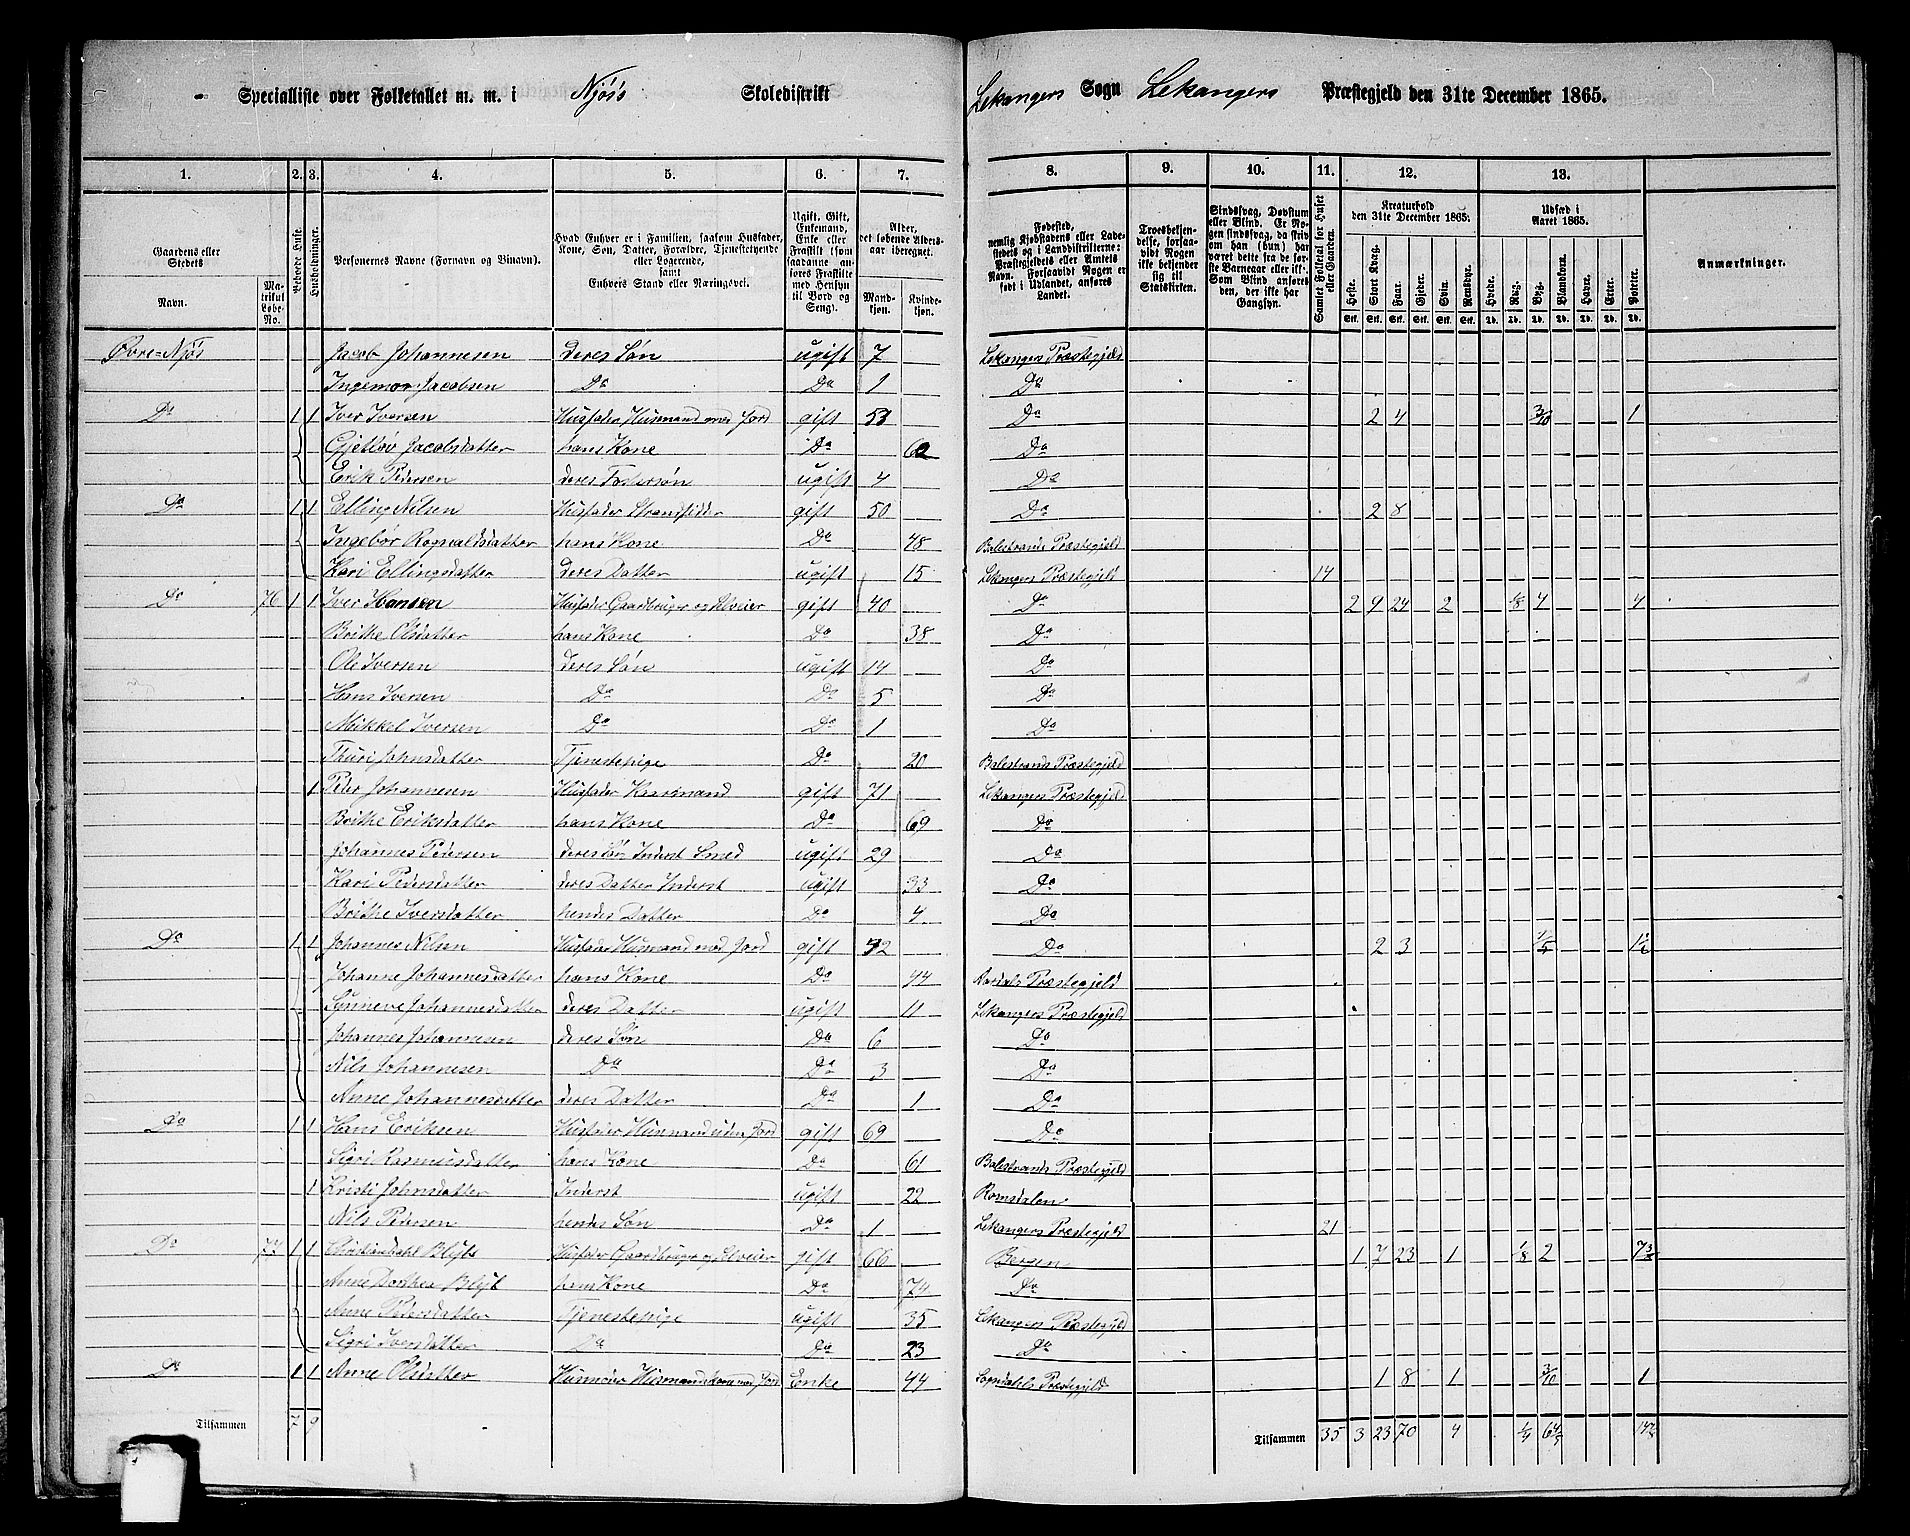 Specialliste over Folketallet m. m. i Njøs Skoledistrikt Lekangers Sogn Lekangers Præstegjeld den 31te December 1865.
1. 2. 3. 4. 5. 6. 7. 8. 9. 10. 11. 12. 13.
Gaardens eller Stedets
Navn.
Matrikul Løbe-No.
Beboede Huse.
Husholdninger.
Personernes Navne (Fornavn og Binavn).
Hvad Enhver er i Familien, saasom Husfader, Kone, Søn, Datter, Forældre, Tjenestetyende eller Logerende, samt Enhvers Stand eller Næringsvei.
Ugift, Gift, Enkemand, Enke eller Fraskilt (som saadanne anføres Fraskilte med Hensyn til Bord og Seng).
Alder, det løbende Aldersaar iberegnet.
Mandkjøn. Kvindekjøn.
Fødested, nemlig Kjøbstadens eller Ladestedets og i Landdistrikterne: Præstegjeldets eller Amtets Navn. Forsaavidt Nogen er født i Udlandet, anføres Landet.
Troesbekjendelse, forsaavidt Nogen ikke bekjender sig til Statskirken.
Sindssvag, Døvstum eller Blind. Er Nogen sindssvag, da skrives om han (hun) har været dette fra de første Barneaar eller ikke. Som Blind anføres den, der ikke har Gangsyn.
Samlet Folketal for Huset eller Gaarden.
Kreaturhold den 31te December 1865.
Heste. Stort Kvæg. Faar. Gjeder. Svin. Rensdyr.
Udsæd i Aaret 1865.
Hvede. Rug. Byg. Blandkorn. Havre. Erter. Poteter.
Anmærkninger.
Øvre-Njøs Jacob Johannesen deres Søn ugift 7 Lekangers Præstegjeld
Ingemar Jacobsen Do Do 1 Do
Do 1 1 Iver Iversen Husfader Husmand med Jord gift 53 Do 2 4 3/10 1
Gjertrø Jacobsdatter hans Kone Do 62 Do
Erik Pedersen deres Fostersøn ugift 4 Do
Do 1 1 Elling Nilsen Husfader Strandsidder gift 50 Do 2 8
Ingebør Rognaldsdatter hans Kone Do 48 Balestrands Præstegjeld
Kari Ellingsdatter deres Datter ugift 15 Lekangers Præstegjeld 14
Do 76 1 1 Iver Hansen Husfader Gaardbruger og Selveier gift 40 Do 2 9 24 2 1/8 4 4
Brithe Olsdatter hans Kone Do 38 Do
Ole Iversen deres Søn ugift 14 Do
Hans Iversen Do Do 5 Do
Mikkel Iversen Do Do 1 Do
Thuri Johnsdatter Tjenestepige Do 20 Balestrands Præstegjeld
1 Peder Johannesen Husfader Kaarmand gift 71 Lekangers Præstegjeld
Brithe Eriksdatter hans Kone Do 69 Do
Johannes Pedersen deres Søn Inderst Smed ugift 29 Do
Kari Pedersdatter deres Datter Inderst ugift 33 Do
Brithe Iversdatter hendes Datter Do 4 Do
Do 1 1 Johannes Nilsen Husfader Husmand med Jord gift 42 Do 2 3 1/5 1½
Johanne Johannesdatter hans Kone Do 44 Aardals Præstegjeld
Synneve Johannesdatter deres Datter ugift 11 Lekangers Præstegjeld
Johannes Johannesen deres Søn Do 6 Do
Nils Johannesen Do Do 3 Do
Anne Johannesdatter deres Datter Do 1 Do
Do 1 1 Hans Eriksen Husfader Husmand uden Jord gift 69 Do
Sigri Rasmusdatter hans Kone Do 61 Balestrands Præstegjeld
1 Kristi Johnsdatter Inderst ugift 22 Romsdalen
Nils Pedersen hendes Søn Do 1 Lekangers Præstegjeld 21
Do 77 1 1 Christian Dahl Blyt Husfader Gaardbruger og Selveier gift 66 Bergen 1 7 23 1 1/8 2
Anne Dorthea Blyt hans Kone Do 74 Do
Anne Pedersdatter Tjenestepige ugift 35 Lekangers Præstegjeld
Sigri Iversdatter Do Do 23 Do
Do 1 1 Anne Olsdatter Husmoder Husmandskone med Jord Enke 44 Sogndals Præstegjeld 1 8 1 3/10 1
Tilsammen 7 9 Tilsammen 35 3 23 70 4